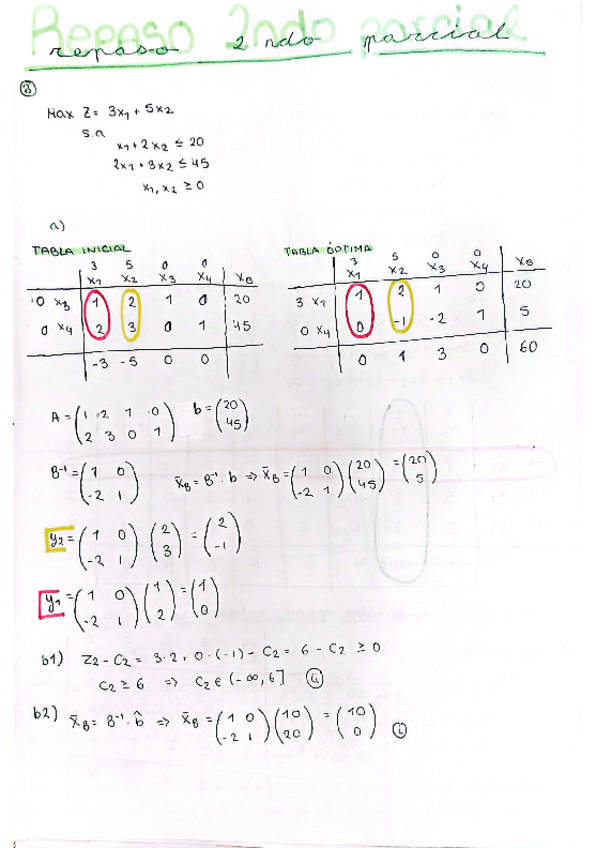 Repaso 2ndo parcial
repaso 2ndo parcial
8
Max Z = 3x₁ + 5x₂
s.a
x₁ + 2x₂ ≤ 20
2x₁ + 3x₂ ≤ 45
x₁, x₂ ≥ 0
a)
TABLA INICIAL
3 5 0 0
x₁ x₂ x₃ x₄ x_B
0 x₃ 1 2 1 0 20
0 x₄ 2 3 0 1 45
-3 -5 0 0
TABLA ÓPTIMA
3 5 0 0
x₁ x₂ x₃ x₄ x_B
3 x₁ 1 2 1 0 20
0 x₄ 0 -1 -2 1 5
0 1 3 0 60
A = (1 2 1 0
2 3 0 1) b = (20
45)
B⁻¹ = (1 0
-2 1) x̄_B = B⁻¹ · b ⇒ x̄_B = (1 0
-2 1) (20
45) = (20
5)
y₂ = (1 0
-2 1) (2
3) = (2
-1)
y₁ = (1 0
-2 1) (1
2) = (1
0)
b1) Z₂ - C₂ = 3·2 + 0·(-1) - C₂ = 6 - C₂ ≥ 0
C₂ ≥ 6 ⇒ C₂ ∈ (-∞, 6] ii
b2) x̄_B = B⁻¹ · b̂ ⇒ x̄_B = (1 0
-2 1) (10
20) = (10
0) i